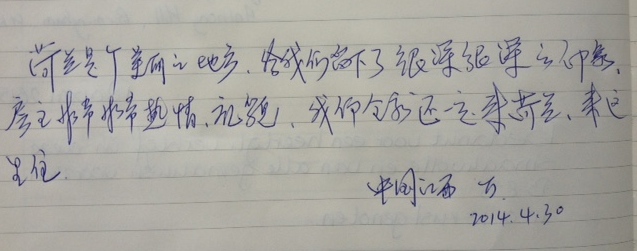 荷兰是个美丽之地方,给我们留下了很深很深之印象,
房主非常非常热情、礼貌,我们全家还一定来荷兰,来这
里住.
中国江西 万
2014.4.30